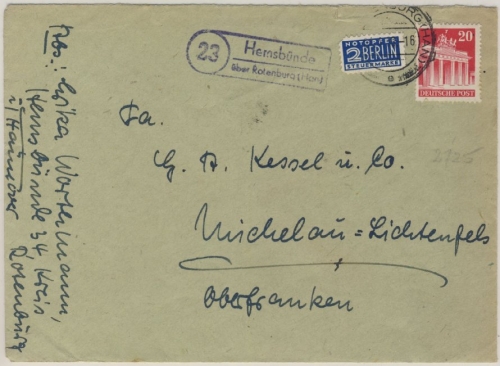 23
Hemsbünde
über Rotenburg (Han)
NOTOPFER
2 BERLIN
STEUERMARKE
BURG (HAN
16
20
DEUTSCHE POST
Fa.
G. A. Kessel u. Co.
Michelau=Lichtenfels
Oberfranken
Abs: Erika Wortmann,
Hemsbünde 34 Kreis
Rotenburg
i/Hannover